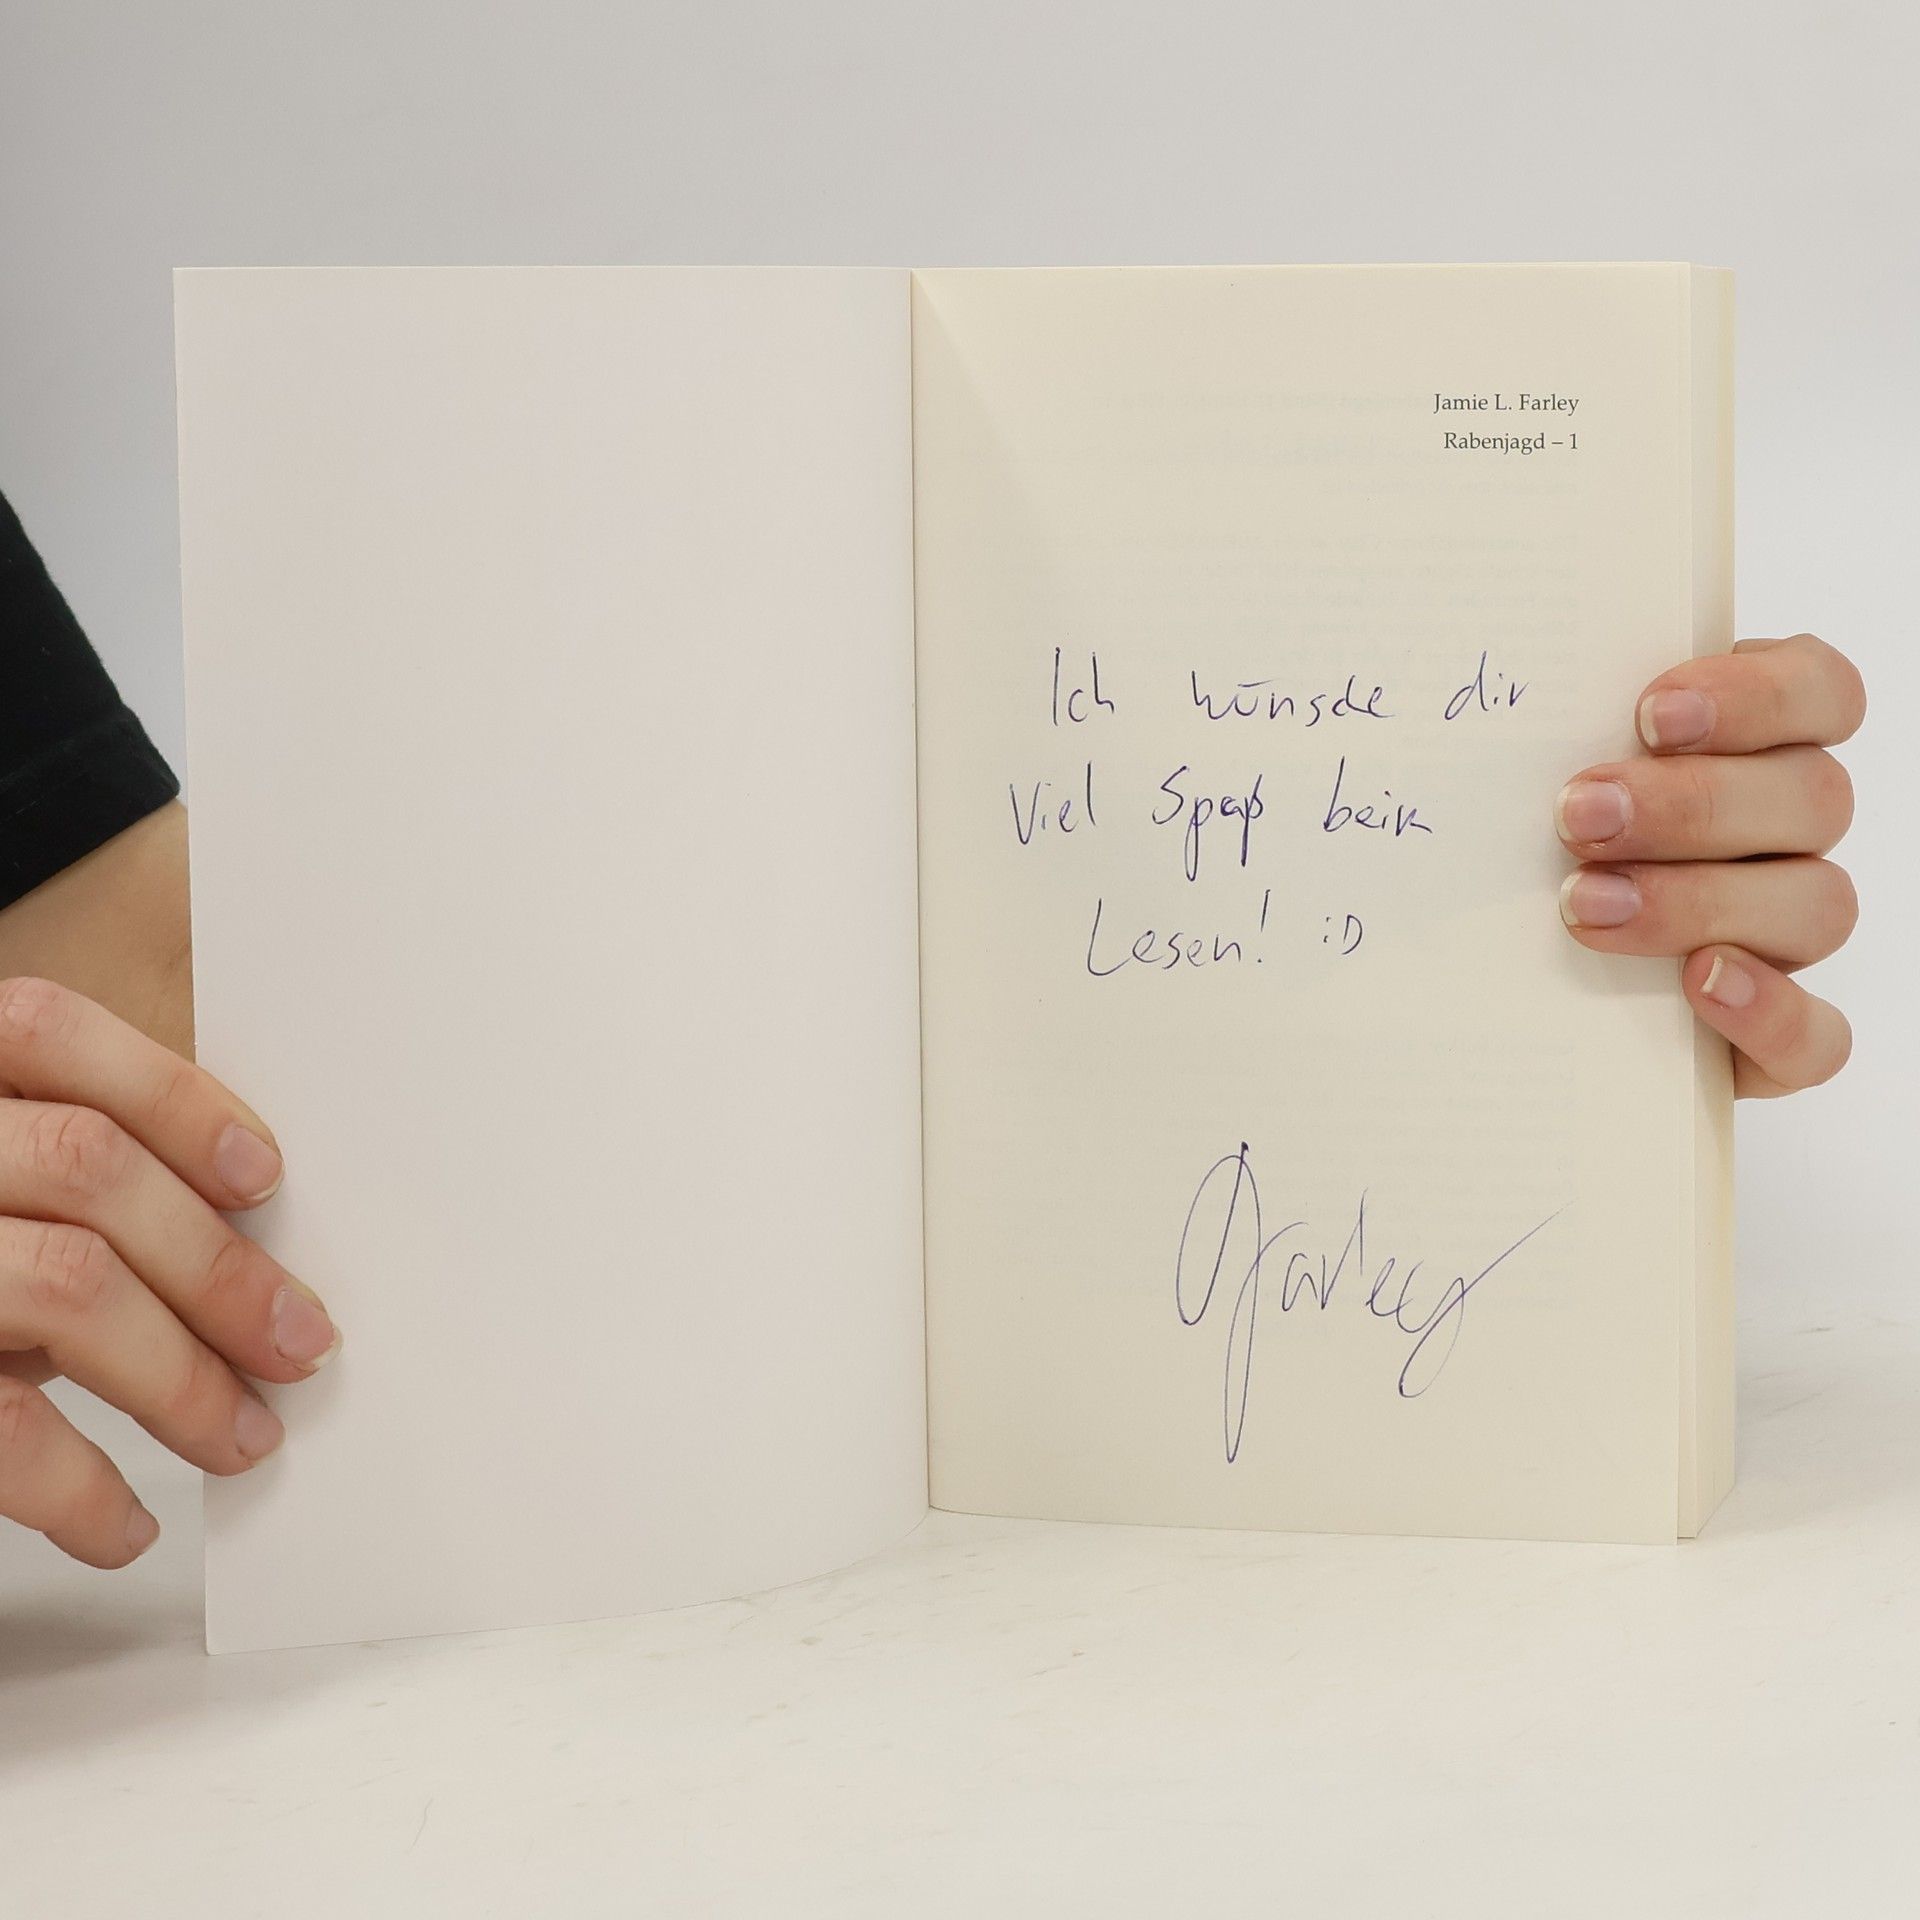 Jamie L. Farley
Rabenjagd – 1
Ich wünsche dir
Viel Spaß beim
Lesen! :D
Farley